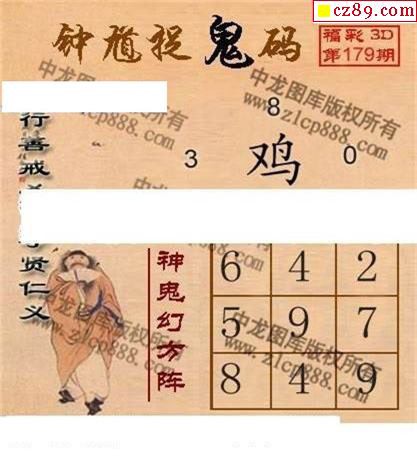 cz89.com
钟馗捉鬼码
福彩3D
第179期
中龙图库版权所有
www.zlcp888.com
行善戒
贤仁义
8
3 鸡 0
神鬼幻方阵
6 4 2
5 9 7
8 4 9
中龙图库版权所有
www.zlcp888.com
中龙图库版权所有
www.zlcp888.com